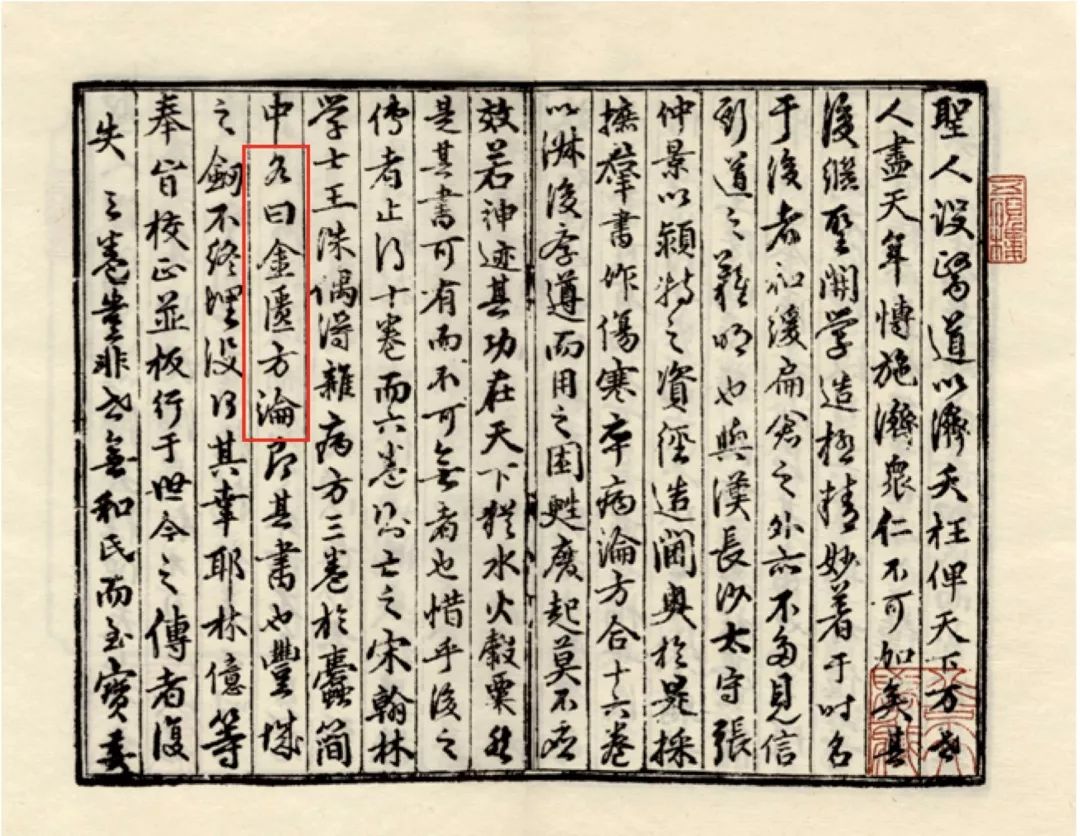 聖人設醫道以濟夭枉俾天下万世
人盡天年博施濟眾仁不可加矣其
後継聖開学造極精妙著于时名
于後者和緩扁倉之外亦不多見信
斯道之難明也與漢長沙太守張
仲景以穎特之資徑造閫奧於是採
摭羣書作傷寒卒病論方合十六卷
以淋後学遵而用之困甦廢起莫不应
效若神迹其功在天下猶水火穀粟然
是其書可有而不可無者也惜乎後之
傳者止得十卷而六卷則亡之宋翰林
学士王洙偶得雜病方三卷於蠹簡
中名曰金匱方論即其書也豐城
之劒不終埋没何其幸耶林億等
奉旨校正並板行于世今之傳者復
失三卷豈非世無和氏而至寶妄